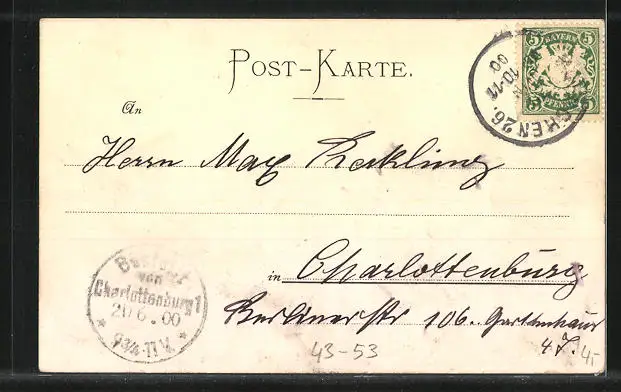 POST-KARTE.
An
Herrn Max
in Charlottenburg
Berlinerstr 106. Gartenhaus
4 Z.
43-53
4,-
5 BAYERN 5
5 PFENNIG 5
CHEN 26.
10-11
00
Bestellt
von
Charlottenburg 1
20 6.00
9¾-11 V.